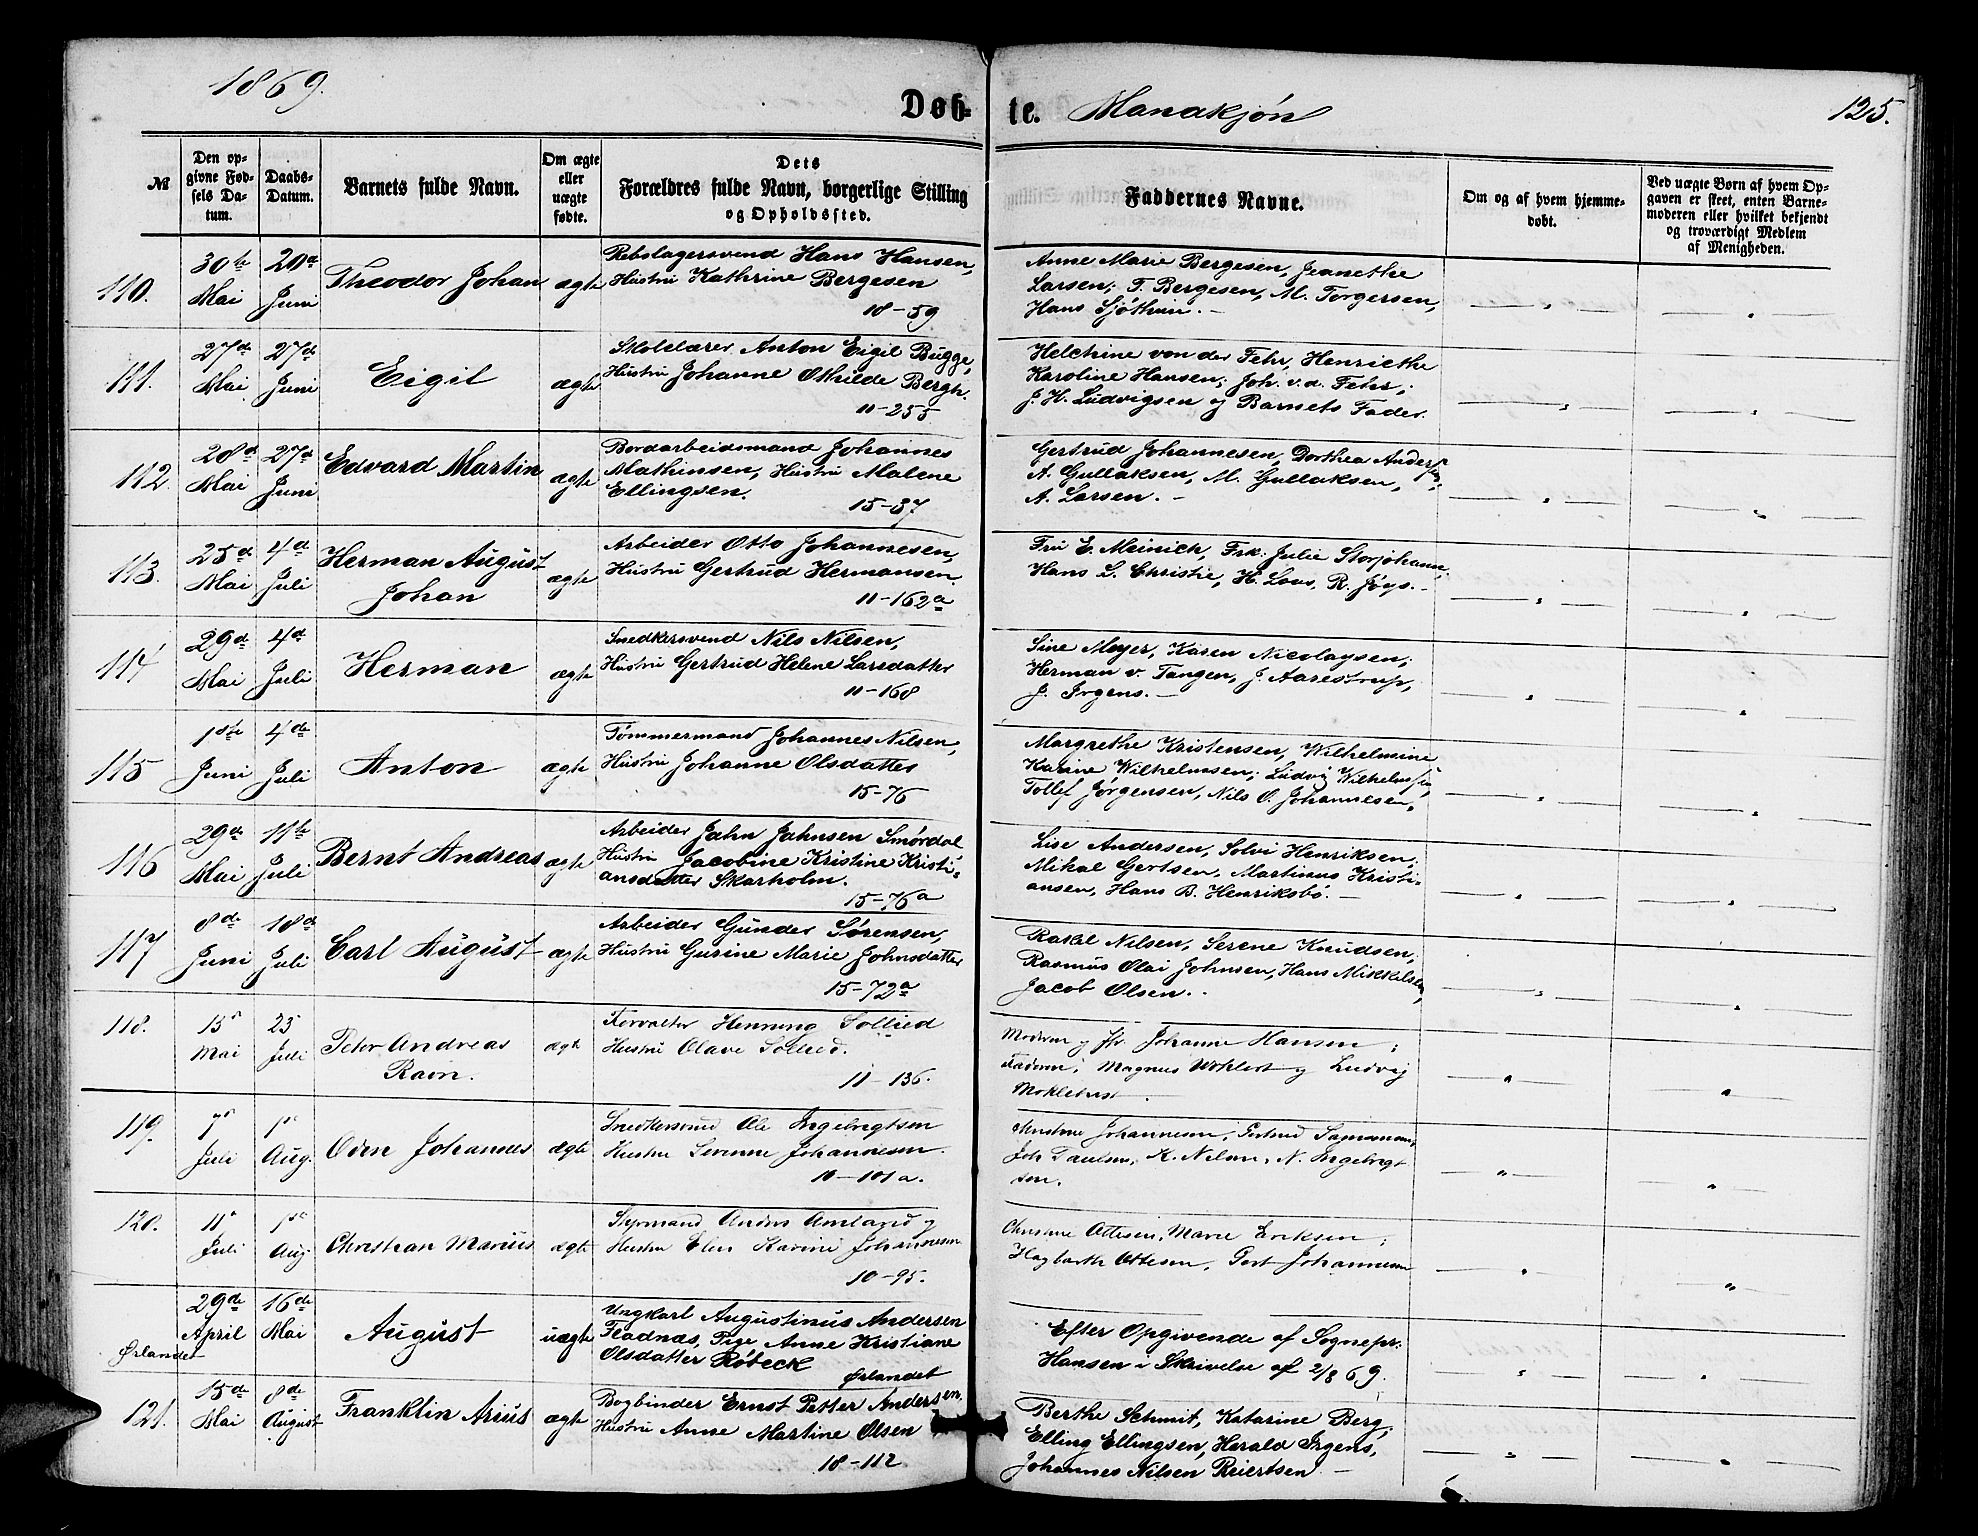 1869.
Døb-
te.
Mandkjøn
125.
№
Den op-
givne Fød-
sels Da-
tum.
Daabs-
Datum.
Barnets fulde Navn.
Om ægte
eller
uægte
fødte.
Dets
Forældres fulde Navn, borgerlige Stilling
og Opholdssted.
Faddernes Navne.
Om og af hvem hjemme-
døbt.
Ved uægte Børn af hvem Op-
gaven er skeet, enten Barne-
moderen eller hvilket bekjendt
og troværdigt Medlem
af Menigheden.
110.
30te
Mai
20de
Juni
Theodor Johan
ægte
Rebslagersvend Hans Hansen,
Hustru Kathrine Bergesen
18-59
Anne Marie Bergesen, Jeanethe
Larsen; T. Bergesen, M. Torgersen,
Hans Sjöthun.-
111.
27de
Mai
27de
Juni
Eigil
ægte
Skolelærer Anton Eigil Bugge,
Hustru Johanne Othilde Bergh.
11-255
Helchine von der Fehr, Henriethe
Karoline Hansen; Joh. v.d. Fehr,
J. H. Ludvigsen og Barnets Fader.
112.
28de
Mai
27de
Juni
Edvard Martin
ægte
Bordarbeidsmand Johannes
Mathinsen, Hustru Malene
Ellingsen.
15-37
Gertrud Johannesen, Dorthea Andersen,
A. Gullaksen, M. Gullaksen,
A. Larsen.-
113.
25de
Mai
4de
Juli
Herman August
Johan
ægte
Arbeider Otto Johannesen,
Hustru Gertrud Hermansen
11-162a
Fru E. Meinich, Frk: Julie Storjohann;
Hans L. Christie, H. Laus, R. Jøys.-
114
29de
Mai
4de
Juli
Herman
ægte
Snedkersvend Nils Nilsen,
Hustru Gertrud Helene Larsdatter
11-168
Sine Meyer, Karen Nicolaysen;
Herman v. Tangen, J. Aarestrup,
J. Irgens.-
115
1ste
Juni
4de
Juli
Anton
ægte
Tømmermand Johannes Nilsen,
Hustru Johanne Olsdatter
15-76
Margrethe Kristensen, Wilhelmine
Karine Wilhelmsen; Ludvig Wilhelmsen,
Tollef Jørgensen, Nils O. Johannesen.
116
29de
Mai
11te
Juli
Bernt Andreas
ægte
Arbeider Jahn Jahnsen Smördal
Hustru Jacobine Kristine Kristi-
ansdatter Skarholm.
15-76a
Lise Andersen, Solvi Henriksen;
Mikal Gertsen, Martinus Kristi-
ansen, Hans B. Henriksbø.-
117
8de
Juni
18de
Juli
Carl August
ægte
Arbeider Gunder Sørensen,
Hustru Gurine Marie Johnsdatter
15-72a
Rakel Nilsen, Serene Knudsen;
Rasmus Olai Johnsen, Hans Mikkelsen,
Jacob Olsen.-
118.
15de
Mai
25
Juli
Peter Andreas
Ravn.
ægte
Forvalter Henning Sollied
Hustru Olave Sollied.
11-136.
Moderen og Jfr. Johanne Hansen;
Faderen, Magnus Wohlert og Ludvig
Moklebust.
119.
7de
Juli
1ste
Aug.
Oden Johannes
ægte
Snedkersvend Ole Ingebrigtsen
Hustru Severine Johannesen.
10-101a.
Johannesen,
Joh Paulsen, K. Nilsen, N. Ingebrigt
sen.
120.
11te
Juli
1ste
Aug
Christian Marius
ægte
Styrmand Anders Amland og
Hustru Elen Karine Johannesen
10-95.
Christine Ottesen, Marie Eriksen;
Hagbarth Ottesen, Gert Johannesen
Ørlandet
29de
April
16de
Mai
August
uægte
Ungkarl Augustinus Andersen
Fladnæs, Pige Anne Kristiane
Olsdatter Röbeck
Ørlandet
Efter Opgivende af Sognepr:
Hansen i Skrivelse af 2/8 69.
121.
15de
Mai
8de
August
Franklin Arius
ægte
Bogbinder Ernst Petter Andersen.
Hustru Anne Martine Olsen
18-112
Berthe Schmit, Katarine Berg,
Elling Ellingsen, Herald Irgens,
Johannes Nilsen Reiertsen.-